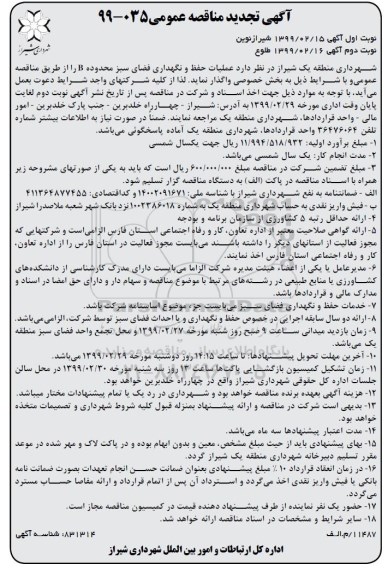 آگهی تجدید مناقصه عمومی ۰۳۵-۹۹
شهرداری شیراز
نوبت اول آگهی ۱۳۹۹/۰۲/۱۵ شیرازنوین
نوبت دوم آگهی ۱۳۹۹/۰۲/۱۶ طلوع
شهرداری منطقه یک شیراز در نظر دارد عملیات حفظ و نگهداری فضای سبز محدوده B را از طریق مناقصه
عمومی و با شرایط ذیل به بخش خصوصی واگذار نماید. لذا از کلیه شرکتهای واجد شرایط دعوت بعمل
می‌آید، با توجه به موارد ذیل جهت اخذ اسناد و شرکت در مناقصه پس از تاریخ نشر آگهی نوبت دوم لغایت
پایان وقت اداری مورخه ۱۳۹۹/۰۲/۲۹ به آدرس: شیراز - چهارراه خلدبرین - جنب پارک خلدبرین - امور
مالی - واحد قراردادها، شهرداری منطقه یک مراجعه نمایند. ضمنا در صورت نیاز به اطلاعات بیشتر شماره
تلفن ۳۶۴۷۶۰۶۴ واحد قراردادها، شهرداری منطقه یک آماده پاسخگوئی می‌باشد.
۱- مبلغ برآورد اولیه: ۱۱/۹۹۴/۵۱۸/۹۳۲ ریال جهت یکسال شمسی
۲- مدت انجام کار: یک سال شمسی می‌باشد.
۳- مبلغ تضمین شرکت در مناقصه مبلغ ۶۰۰/۰۰۰/۰۰۰ ریال است که باید به یکی از صورتهای مشروحه زیر
همراه با اسناد مناقصه در پاکت (الف) به دستگاه مناقصه گزار تسلیم شود.
الف - ضمانتنامه به نفع شهرداری شیراز با شناسه ملی: ۱۴۰۰۲۰۹۱۶۷۱ و کداقتصادی: ۴۱۱۳۶۴۸۷۷۴۵۵
ب - فیش واریز نقدی به حساب شهرداری منطقه یک به شماره ۱۰۰۲۳۸۶۰۱۸ نزد بانک شهر شعبه ملاصدرا شیراز
۴- ارائه حداقل رتبه ۵ کشاورزی از سازمان برنامه و بودجه
۵- ارائه گواهی صلاحیت معتبر از اداره تعاون، کار و رفاه اجتماعی استان فارس الزامی‌است و شرکتهایی که
مجوز فعالیت از استانهای دیگر را داشته باشند می‌بایست مجوز فعالیت در استان فارس را از اداره تعاون،
کار و رفاه اجتماعی استان فارس اخذ نمایند.
۶- مدیرعامل یا یکی از اعضاء هیئت مدیره شرکت الزاما می‌بایست دارای مدرک کارشناسی از دانشکده‌های
کشاورزی یا منابع طبیعی در رشته‌های مرتبط با موضوع مناقصه و سهام دار و دارای حق امضا در اسناد و
مدارک مالی و قراردادها باشد.
۷- خدمات حفظ و نگهداری فضای سبز می‌بایست جزء موضوع اساسنامه شرکت باشد.
۸- ارائه دو سال سابقه اجرایی در خصوص حفظ و نگهداری و یا احداث فضای سبز توسط شرکت، الزامی‌می‌باشد.
۹- زمان بازدید میدانی ساعت ۹ صبح روز شنبه مورخه ۱۳۹۹/۰۲/۲۷ و محل تجمع واحد فضای سبز منطقه
یک می‌باشد.
۱۰- آخرین مهلت تحویل پیشنهادها: تا ساعت ۱۴:۱۵ روز دوشنبه مورخه ۱۳۹۹/۰۲/۲۹ می‌باشد.
۱۱- زمان تشکیل کمیسیون بازگشایی پاکت‌ها ساعت ۱۳ روز سه شنبه مورخه ۱۳۹۹/۰۲/۳۰ در محل سالن
جلسات اداره کل حقوقی شهرداری شیراز واقع در چهارراه خلدبرین خواهد بود.
۱۲- هزینه آگهی بعهده برنده مناقصه خواهد بود و شهرداری در رد یک یا تمام پیشنهادات مختار میباشد.
۱۳- بدیهی است شرکت در مناقصه و ارائه پیشنهاد بمنزله قبول کلیه شروط شهرداری و تصمیمات متخذه
خواهد بود.
۱۴- مدت اعتبار پیشنهادها سه ماه می‌باشد.
۱۵- بهای پیشنهادی باید از حیث مبلغ مشخص، معین و بدون ابهام بوده و در پاکت لاک و مهر شده در موعد
مقرر تسلیم دبیرخانه شهرداری منطقه یک شیراز گردد.
۱۶- در زمان انعقاد قرارداد ۱۰٪ مبلغ پیشنهادی بعنوان ضمانت حسن انجام تعهدات بصورت ضمانت نامه
بانکی یا فیش واریز نقدی اخذ می‌گردد و استرداد آن پس از اتمام قرارداد و ارائه مفاصا حساب مسترد
می‌گردد.
۱۷- حضور یک نفر نماینده از طرف پیشنهاد دهنده قیمت در کمیسیون مناقصه مجاز است.
۱۸- سایر شرایط و مشخصات در اسناد مناقصه ارائه خواهد شد.
۱۱۴۸۷/م.الف
۸۳۱۳۱۴: شناسه آگهی
اداره کل ارتباطات و امور بین الملل شهرداری شیراز